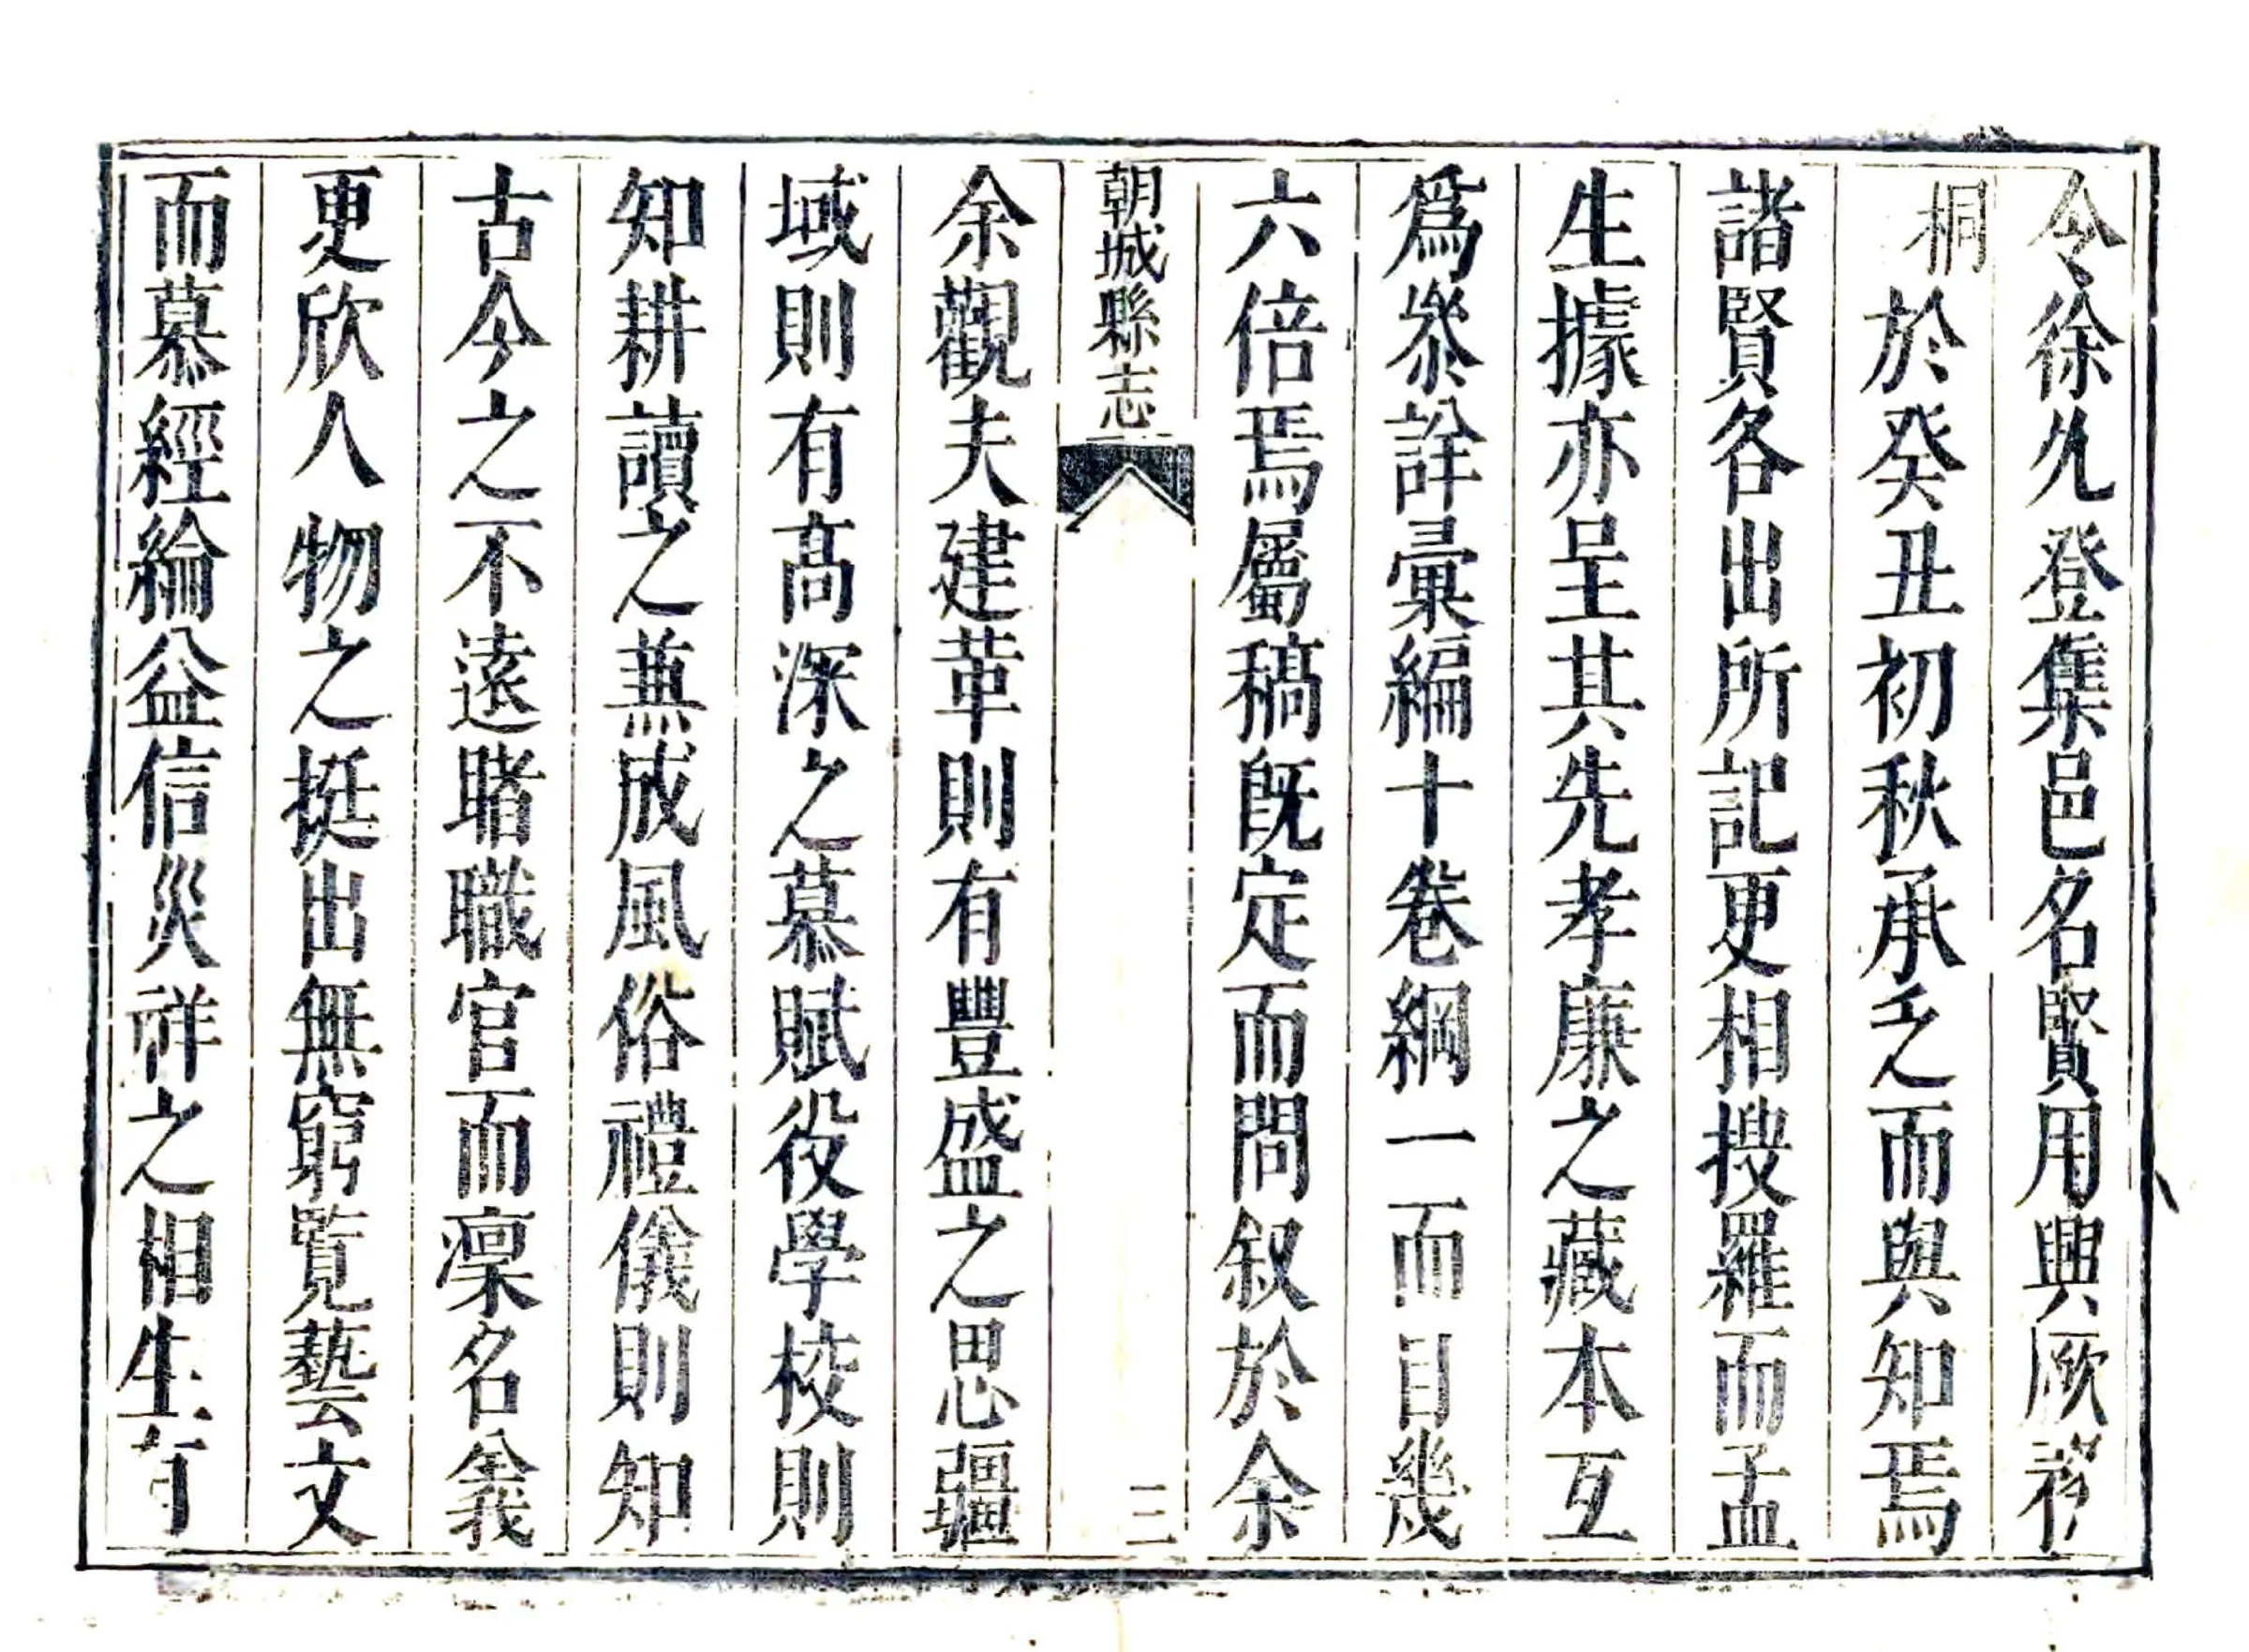 令徐允登集邑名賢用興厥
桐於癸丑初秋承乏而與知焉
諸賢各出所記更相搜羅而孟
生據亦呈其先孝廉之藏本互
爲叅詳彙編十卷綱一而目幾
六倍焉屬稿旣定而問叙於余
朝城縣志
三
余觀夫建革則有豐盛之思疆
域則有高深之慕賦役學校則
知耕讀之兼成風俗禮儀則知
古今之不遠睹職官而凜名義
更欣人物之挺出無窮覧藝文
而慕經綸益信災祥之相生有